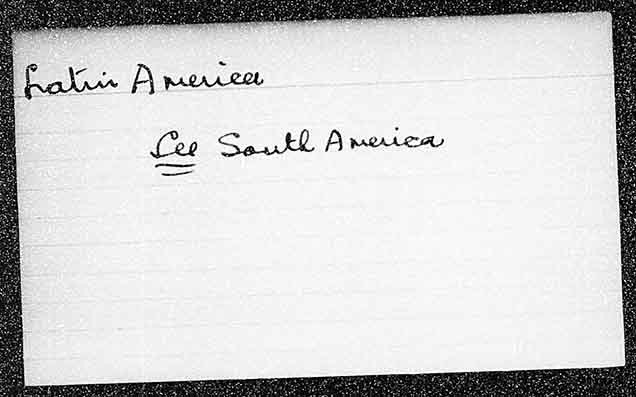 Latin America
See South America